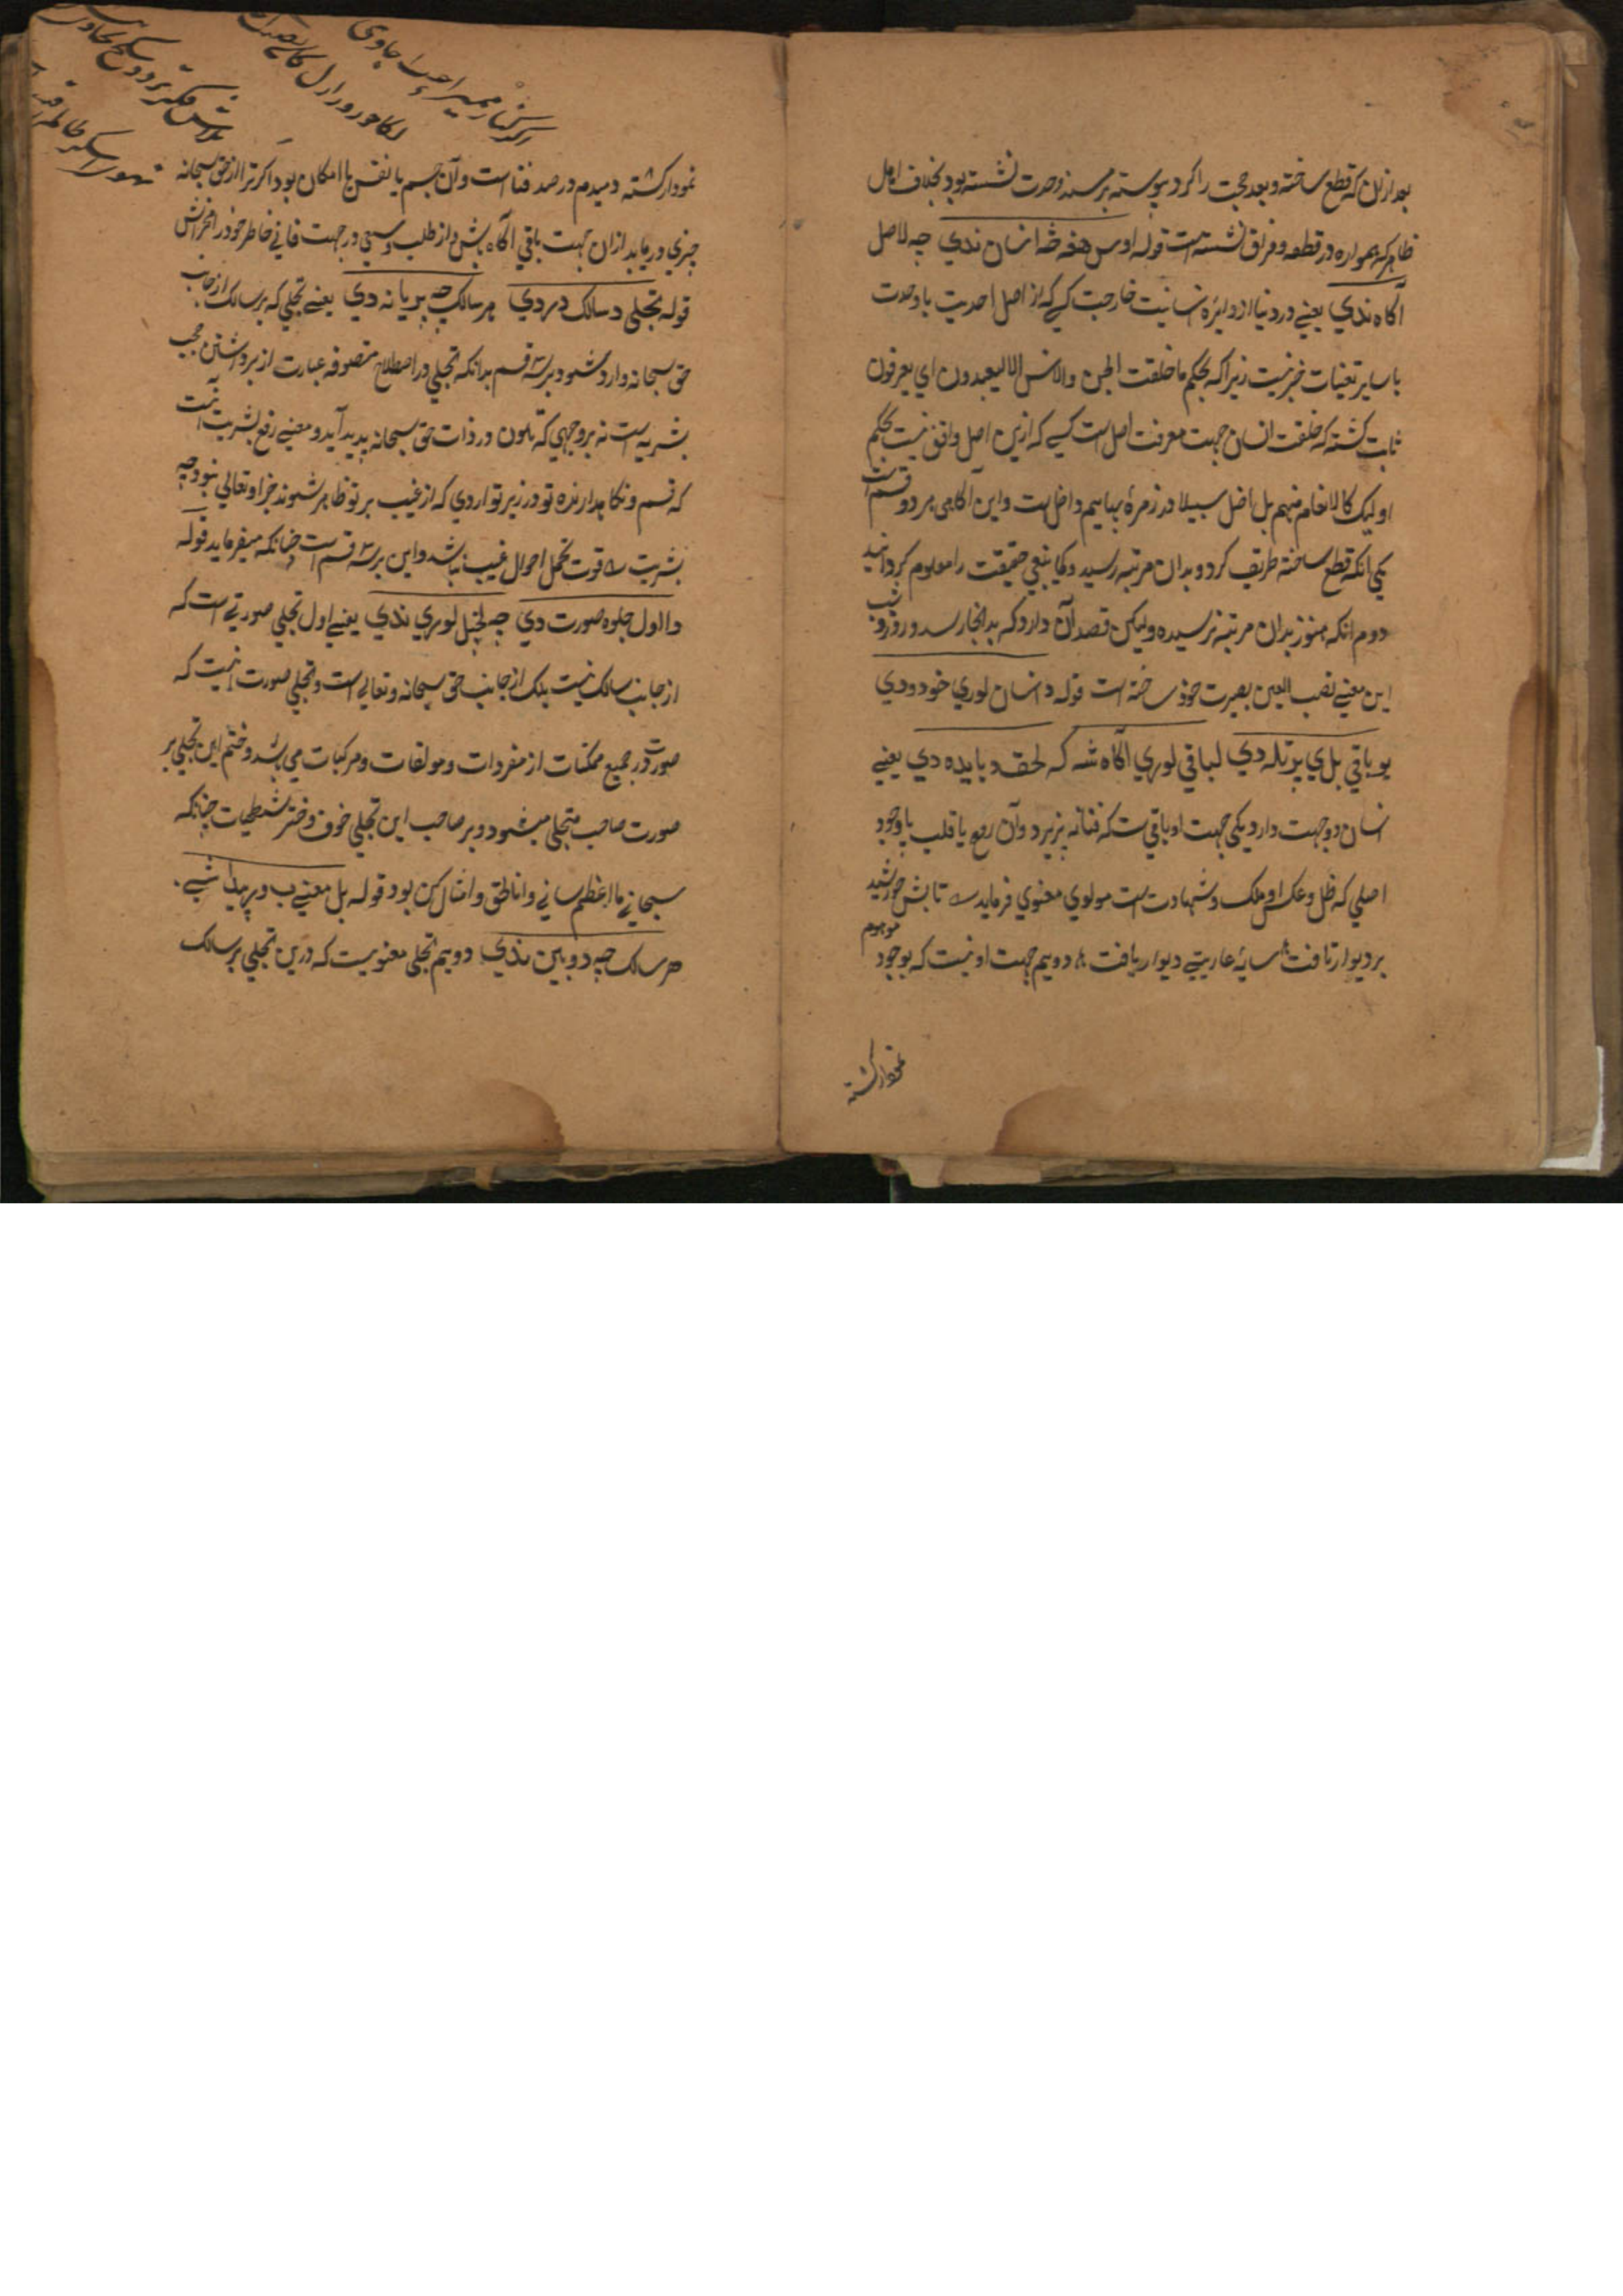 بعد ازان که قطع ساخته و بعد حجت را کرد پیوسته بر مسند وحدت نشسته بود بخلاف اهل
ظاهر که همواره در قطعه و فراق نشسته است قوله اوس هغه څه انسان ندي چه لاصل
آکاه ندي یعنے در دنیا از دایرۀ انسانیت خارجست کسے که از اصل احدیت با وحدت
با سایر تعینات خبر نیست زیراکه بحکم ما خلقت الجن والانس الا لیعبدون اي یعرفون
ثابت کشته که خلقت انسان جهت معرفت اصل است کسے که ازین اصل واقف نیست بحکم
اولیک کالانعام منهم بل اضل سبیلا در زمرۀ بهایم داخل است و این آکاهی بر دو قسم است
یکی انکه قطع ساخته طریف کرد و بدان مرتبه رسید و کما ینبغي حقیقت را معلوم کردانید
دوم انکه هنوز بدان مرتبه نرسیده ولیکن قصد آن دارد که بدانجا رسد و روز و شب
این معنے نصب العین بصیرت خود ساخته است قوله د انسان لوري خود ودي
یو باقي بل ي پرتله دي لباقي لوري آکاه شه که لحقه د بایده دي یعنے
انسان دو جهت دارد یکی جهت او باقي ست که فنا نه پزیرد و آن روح یا قلب یا وجود
اصلي که ظل و عکس او ملک و شهادت است مولوي معنوي فرماید تابش خورشید
بر دیوار تافت سایۀ عاریتے دیوار یافت دویم جهت او نیست که بوجود موهوم
نمودار کشته
نمودار کشته دمیدم در صدد فنا است و آن جسم یا نفس یا امکان بود اکر ترا از حق سبحانه
چیزي در یابد ازان جهت باقي آکاه باش و از طلب و سعي در جهت فاني خاطر خود را مخراش
قوله تجلی د سالک د مردي هر سالک چه پر یا نه دي یعنے تجلي که بر سالک از جانب
حق سبحانه وارد میشود بر سه قسم بدانکه تجلي در اصطلاح متصوفه عبارت از برداشتن حجب
بشریه است نه بر وجهي که تلون در ذات حق سبحانه پدید آید و معنے رفع بشریت انست
که قسم و نکاهدارنده تو در زیر تواردي که از غیب بر تو ظاهر شوند جز او تعالي نبود چه
بشریت را قوت تحمل احوال غیب نباشد و این بر سه قسم است چنانکه میفرماید قوله
دا اول جلوه صورت دي چه لخپل لوري ندي یعنے اول تجلي صورتے است که
از جانب سالک نیست بلک از جانب حق سبحانه و تعالے است و تجلي صورت انیست که
صورت در جمیع ممکنات از مفردات و مولفات و مرکبات می باشد و ختم این تجلي بر
صورت صاحب متجلي میشود و بر صاحب این تجلي خوف و خطر شطحیات چنانکه
سبحاني ما اعظم شانے و انا الحق و امثال کن بود قوله بل معنے ب ور پیدا شے
هر سالک چه دوبین ندي دویم تجلي معنویست که درین تجلي بر سالک